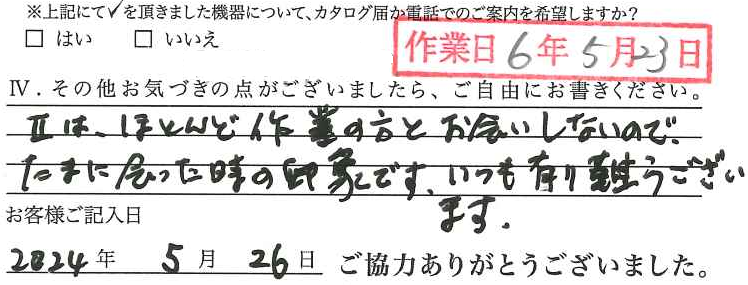 ※上記にて✓を頂きました機器について、カタログ届か電話でのご案内を希望しますか?
□ はい □ いいえ
作業日 6年 5月23日
Ⅳ. その他お気づきの点がございましたら、ご自由にお書きください。
Ⅱは、ほとんど作業の方とお会いしないので、
たまに会った時の印象です。いつも有り難うござい
ます。
お客様ご記入日
2024年 5月 26日 ご協力ありがとうございました。